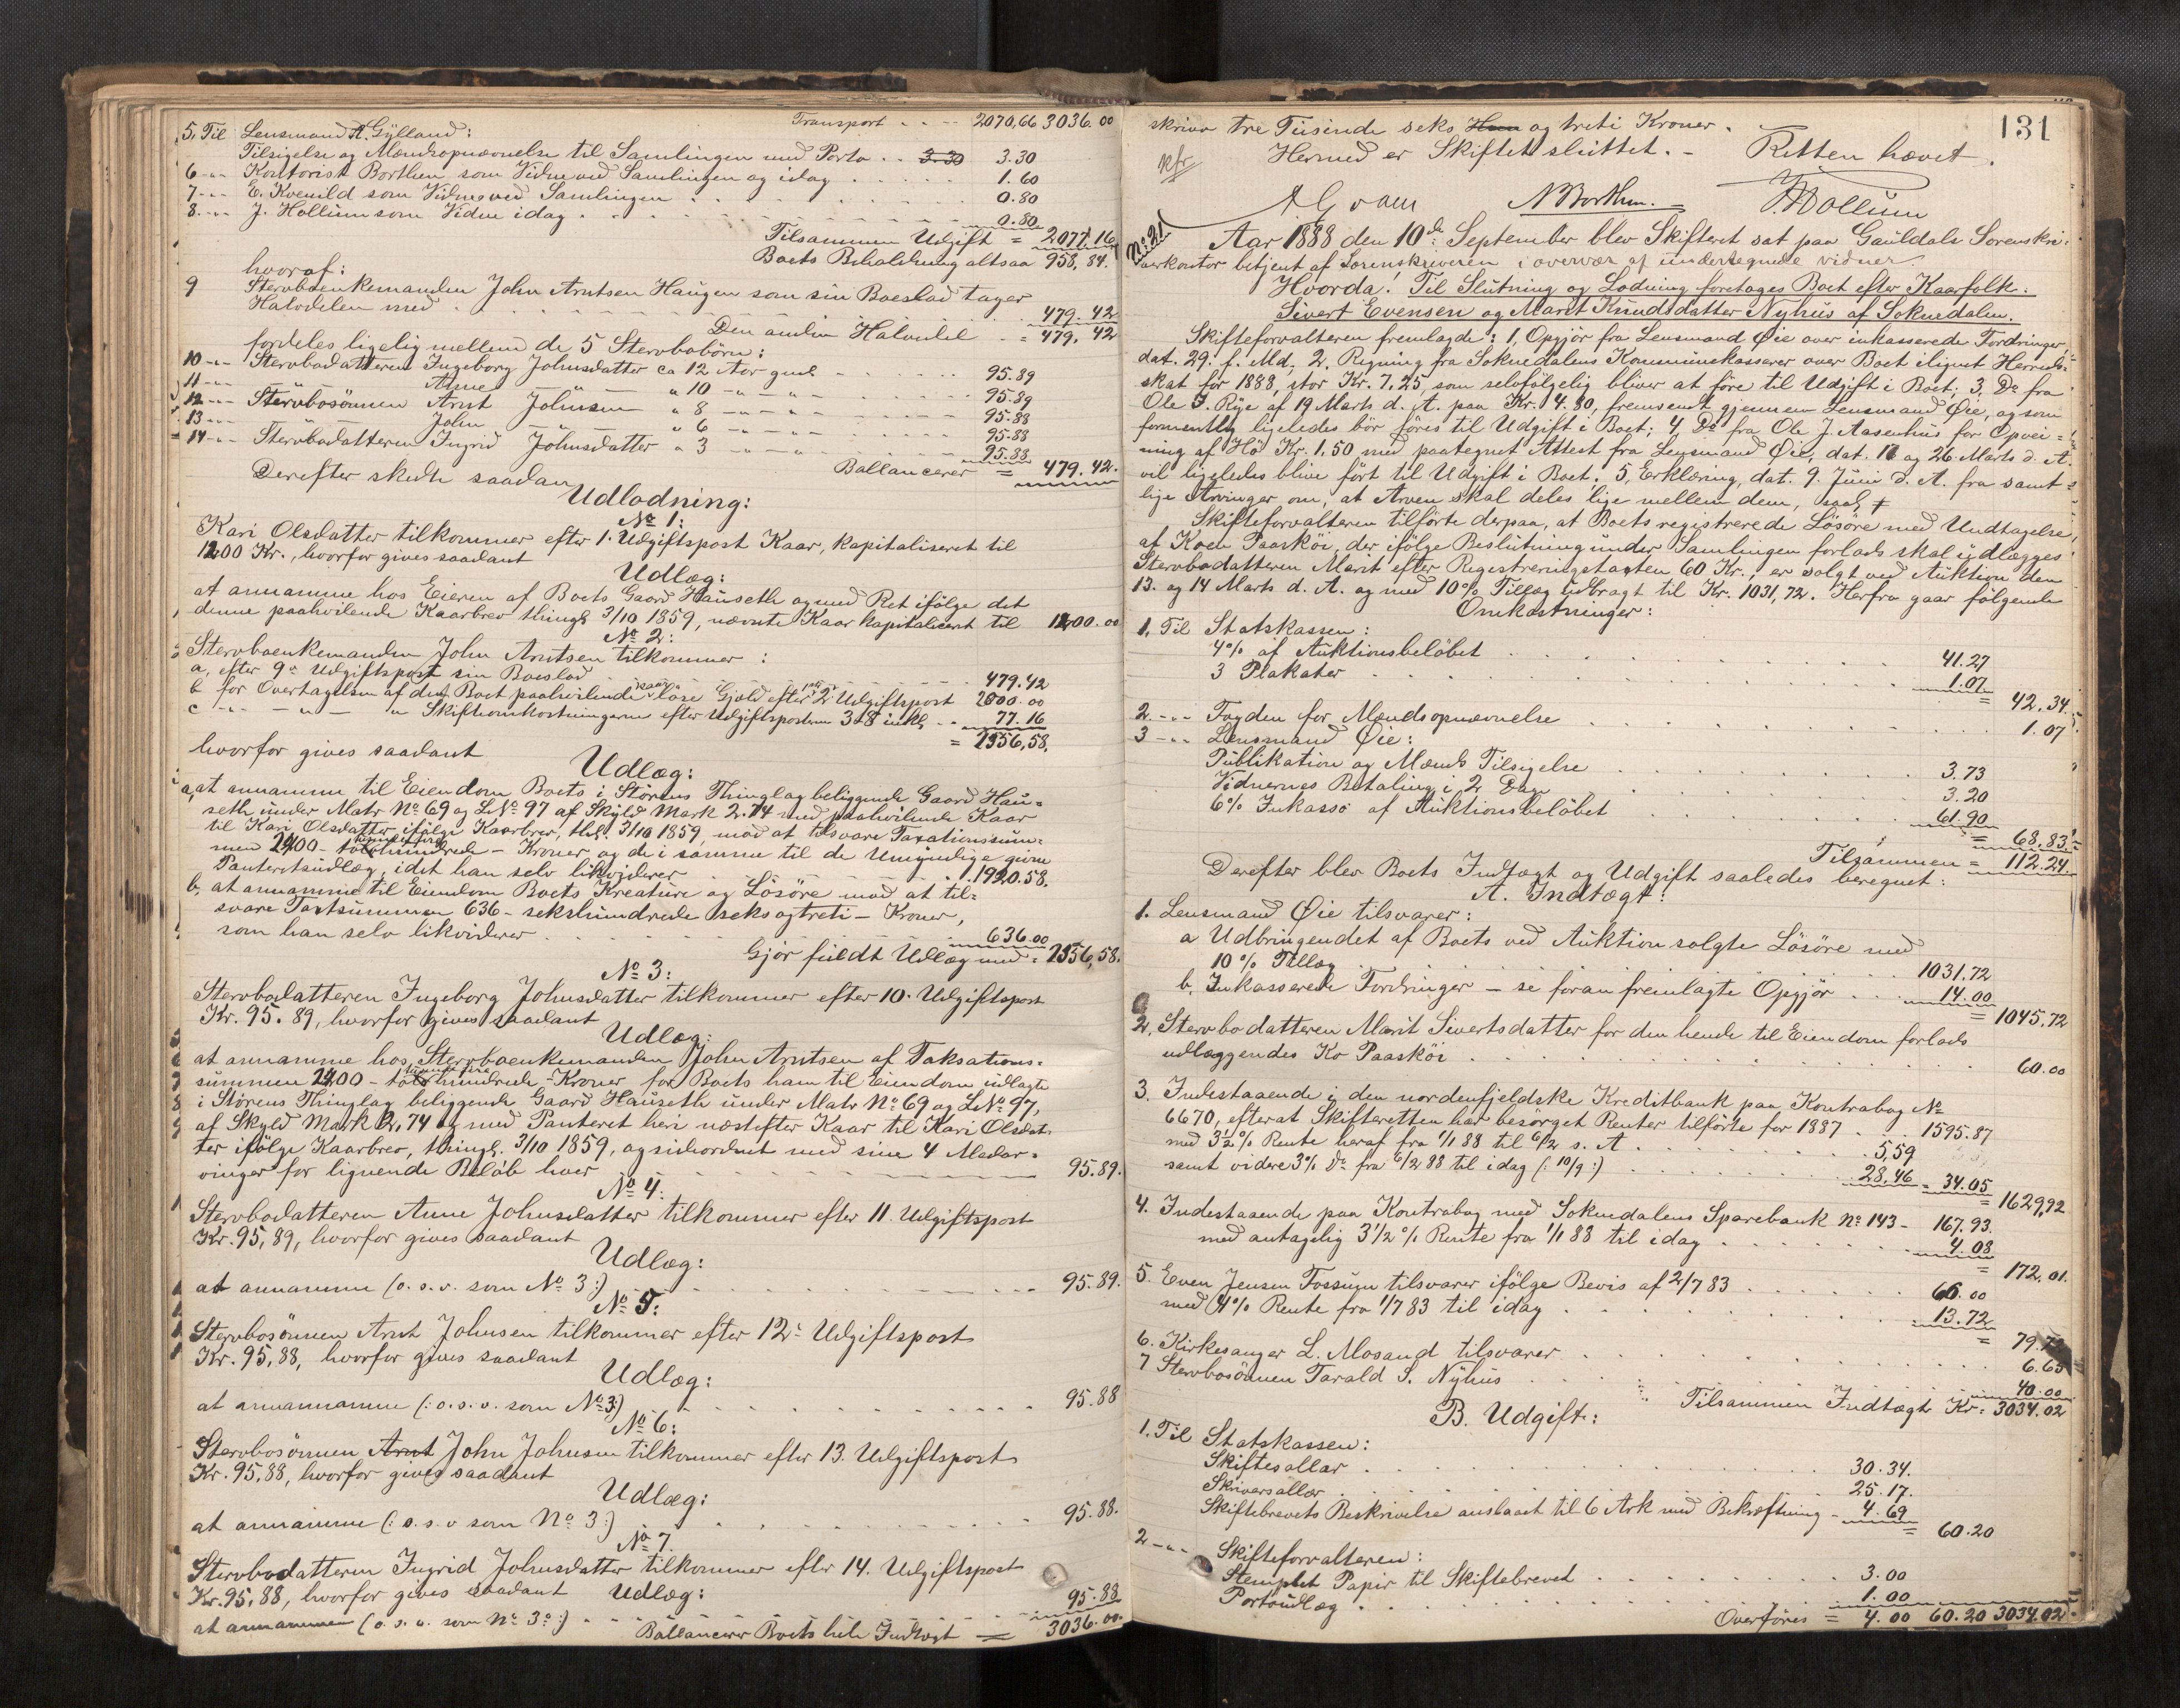 Transport . . -- 2070,66 3036.00
5, Til Lensmand A. Gylland:
Tilsigelse og Mændsopnævnelse til Samlingen med Porto . . 3.30 3.30
6 -"- Kontorist Borthen som Vidne ved Samlingen og idag . . . . 1.60
7 -"- E. Kvenild som Vidne ved Samlingen . . . . 0.80
8 -"- J. Hollum som Vidne idag . . . . 0.80
Tilsammen Udgift = 2077.16
Boets Beholdning altsaa 958,84.
hvoraf:
9 Stervboenkemanden John Arntsen Haugen som sin Boeslod tager
Halvdelen med . . . . 479.42
Den anden Halvdel . = 479,42
fordeles ligelig mellem de 5 Stervbobörn:
10 -"- Stervbodatteren Ingeborg Johnsdatter ca 12 Aar gml - - . . . 95.89
11 -"- Anne -"- " 10 -"- . . . 95.89
12 -"- Stervbosönnen Arnt Johnsen " 8 -"- . . . 95.88
13 -"- John -"- " 6 -"- . . . 95.88
14 -"- Stervbodatteren Ingrid Johnsdatter " 3 -"- . . . 95.88
Ballancerer = 479.42.
Derefter skede saadan
Udlodning:
No 1:
Kari Olsdatter tilkommer efter 1. Udgiftspost Kaar, kapitaliseret til
1200 Kr., hvorfor gives saadant
Udlæg:
at annamme hos Eieren af Boets Gaard Hauseth og med Ret ifölge det
denne paahvilende Kaarbrev thingl 3/10 1859, nævnte Kaar kapitaliceret til 1200.00
No 2:
Stervboenkemanden John Arntsen tilkommer:
a, efter 9de Udgiftspost sin Boeslod . . . . 479.42
b for Overtagelsen af den Boet paahvilende löse Gjæld efter 2 Udgiftspost 2000.00
c -"- -"- -"- Skifteomkostningerne efter Udgiftsposterne 3-8 inkl . . 77.16
= 2556,58.
hvorfor gives saadant
Udlæg:
a, at annamme til Eiendom Boets i Störens Thinglag beliggende Gaard Hau=
seth under Matr No 69 og L No 97 af Skyld Mark 2.74 med paahvilende Kaar
til Kari Olsdatter ifölge Kaarbrev, thl. 3/10 1859, mod at tilsvare Taxationssum=
men 2400 - hundrede - Kroner og de i samme til de Umyndige givne
Panteretsudlæg, idet han selv likviderer . . . . 1920.58.
b, at annamme til Eiendom Boets Kreature og Lösöre mod at til=
svare Taxtsummen 636 - sekshundrede seks og treti - Kroner,
som han selv likviderer . . . . 636.00
Gjör fuldt Udlæg med = 2556,58.
No 3:
Stervbodatteren Ingeborg Johnsdatter tilkommer efter 10. Udgiftspost
Kr. 95.89, hvorfor gives saadant
Udlæg:
at annamme hos Stervboenkemanden John Arntsen af Taksations=
summen 2400 - hundrede - Kroner for Boets ham til Eiendom udlagte
i Störens Thinglag beliggende Gaard Hauseth under Matr No 69 og L No 97,
af Skyld Mark 2,74 og med Panteret heri næstefter Kaar til Kari Olsdat-
ter ifölge Kaarbrev, thingl. 3/10 1859, og sidordnet med sine 4 Medar=
vinger for lignende Belöb hver . . . . 95.89.
No 4:
Stervbodatteren Anne Johnsdatter tilkommer efter 11. Udgiftspost
Kr. 95,89, hvorfor gives saadant
Udlæg:
at annamme (o. s. v. som No 3:) . . . . 95.89.
No 5:
Stervbosönnen Arnt Johnsen tilkommer efter 12: Udgiftspost
Kr. 95,88, hvorfor gives saadant
Udlæg:
at annannamme (: o. s. v. som No 3:) . . . . 95.88
No 6:
Stervbosönnen Arnt John Johnsen tilkommer efter 13. Udgiftspost
Kr. 95,88, hvorfor gives saadant
Udlæg:
at annamme (: o. s. v som No 3:) . . . . 95.88.
No 7.
Stervbodatteren Ingrid Johnsdatter tilkommer efter 14. Udgiftspost
Kr. 95,88, hvorfor gives saadant Udlæg:
at annammen (o. s. v. som No 3:) . . . . 95.88
Ballancerer Boets hele Indtægt = 3036.00.
131
skriver tre Tusinde seks og treti Kroner.
Hermed er Skiftet sluttet. - Retten hævet.
kfr
N Borthen. J. Hollum
No 21
Aar 1888 den 10de September blev Skifteret sat paa Gauldals Sorenskri=
verkontor betjent af Sorenskriveren i overvær af undertegnede vidner.
Hvorda: Til Slutning og Lodning foretoges Boet efter Kaarfolk:
Sivert Evensen og Maret Knudsdatter Nyhus af Soknedalen.
Skifteforvalteren fremlagde: 1, Opgjör fra Lensmand Øie over inkasserede Fordringer,
dat. 29. f. Md, 2. Regning fra Soknedalens Kommunekasserer over Boet ilignet Herreds=
skat for 1888, stor Kr. 7.25 som selvfölgelig bliver at före til Udgift i Boet; 3, Do fra
Ole J. Rye af 19 Marts d. A. paa Kr. 4.80, fremsendt gjennem Lensmand Øie, og som
formentlig ligeledes bör föres til Udgift i Boet; 4 Do fra Ole J. Aasenhus for Opvei=
ning af Hö Kr. 1.50 med paategnet Attest fra Lensmand Øie, dat. 17 og 26 Marts d. A.
vil ligeledes blive fört til Udgift i Boet. 5, Erklæring, dat. 9. Juni d. A. fra samt=
lige Arvinger om, at Arven skal deles lige mellem dem,
Skifteforvalteren tilförte derpaa, at Boets registrerede Lösöre med Undtagelse
af Koen Paasköi, der ifölge Beslutning under Samlingen forlods skal udlægges
Stervbodatteren Marit efter Registreringstaxten 60 Kr., er solgt ved Auktion den
13. og 14 Marts d. A. og med 10% Tillæg udbragt til Kr. 1031,72. Herfra gaar fölgende
Omkostninger:
1, Til Statskassen:
4% af Auktionsbelöbet . . . . 41.27
3 Plakater . . . . 1.07
= 42,34.
2 -"- Fogden for Mændsopnævnelse . . . . 1.07
3 -"- Lensmand Øie:
Publikation og Mænds Tilsigelse . . . . 3.73
Vidnernes Betaling i 2 Dage . . . . 3.20
6% Inkasso af Auktionsbelöbet . . . . 61.90
= 68.83
Tilsammen = 112.24.
Derefter blev Boets Indtægt og Udgift saaledes beregnet:
A. Indtægt:
1. Lensmand Øie tilsvarer:
a Udbringendet af Boets ved Auktion solgte Lösöre med
10% Tillæg . . . . 1031.72
b, Inkasserede Fordringer - se foran fremlagte Opgjör . . . 14.00
= 1045,72
2, Stervbodatteren Marit Sivertsdatter for den hende til Eiendom forlods
udlæggendes Ko Paasköi . . . . 60.00
3. Indestaaende i den nordenfjeldske Kreditbank paa Kontrabog No
6670, efterat Skifteretten har besörget Renter tilförte for 1887 . . 1595.87
med 3½% Rente heraf fra 1/1 88 til 6/2 s. A . . . . 5,59
samt videre 3% Do fra 6/2 88 til idag (: 10/9 :) . . . . 28,46 = 34.05
= 1629,92
4. Indestaaende paa Kontrabog med Soknedalens Sparebank No 143 - 167,93.
med antagelig 3½% Rente fra 1/1 88 til idag . . . . 4.08
= 172,01.
5. Even Jensen Fossum tilsvarer ifölge Bevis af 2/7 83 . . . . 66.00
med 4% Rente fra 1/7 83 til idag . . . . 13.72
= 79.72
6. Kirkesanger L. Mosand tilsvarer . . . . 6.65
7 Stervbosönnen Tarald S. Nyhus . . . . 40.00
Tilsammen Indtægt Kr: 3034.02
B. Udgift:
1. Til Statskassen:
Skiftesallær . . . . 30.34.
Skriversallær . . . . 25.17.
Skiftebrevets Beskrivelse anslaaet til 6 Ark med Bekræftning - 4.69
= 60.20
2 -"- Skifteforvalteren:
Stemplet Papir til Skiftebrevet . . . . 3.00
Portoudlæg . . . . 1.00
Overföres = 4.00 60.20 3034.02